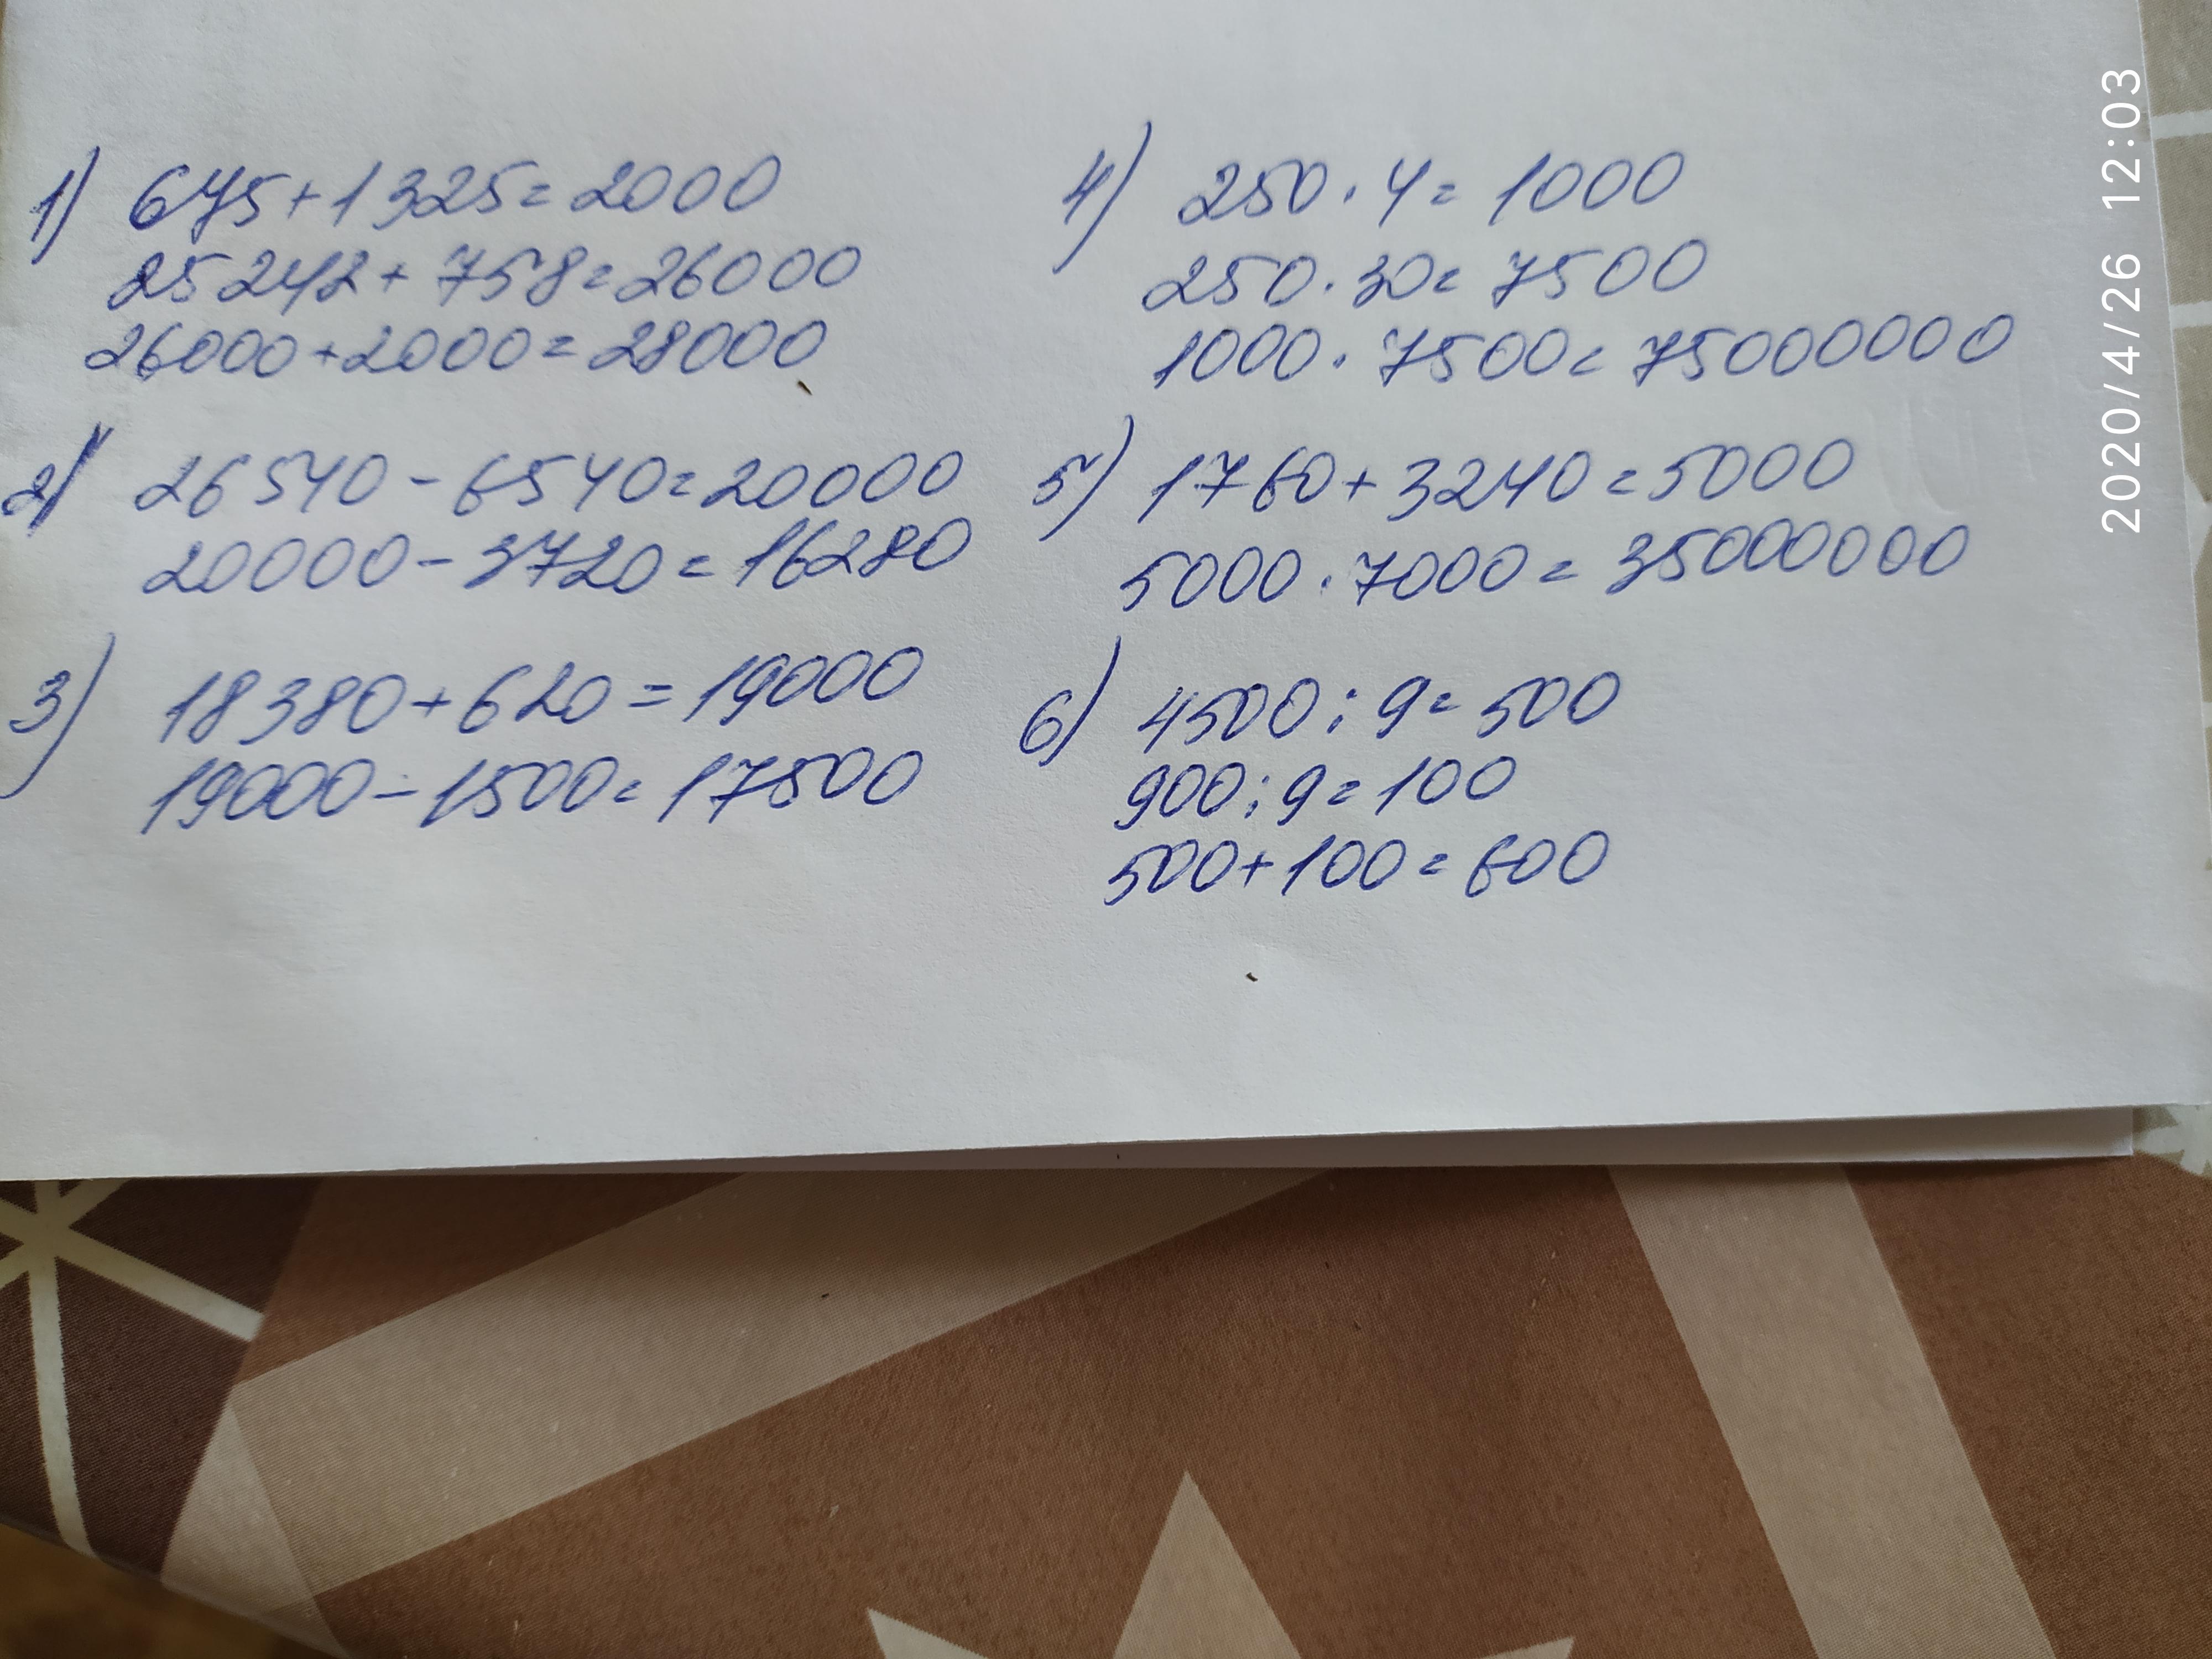 1) 675+1325=2000
25242+758=26000
26000+2000=28000
2) 26540-6540=20000
20000-3720=16280
3) 18380+620=19000
19000-1500=17500
4) 250·4=1000
250·30=7500
1000·7500=75000000
5) 1760+3240=5000
5000·7000=35000000
6) 4500:9=500
900:9=100
500+100=600
2020/4/26 12:03